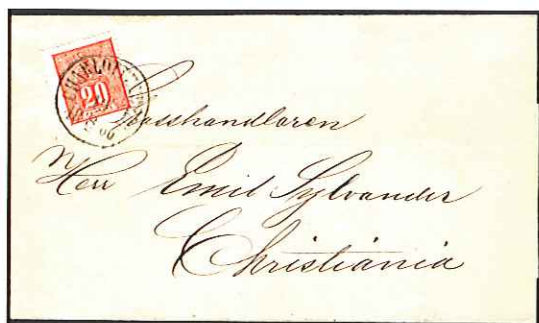 20
Grosshandlaren
Herr Emil Sylvander
Christiania